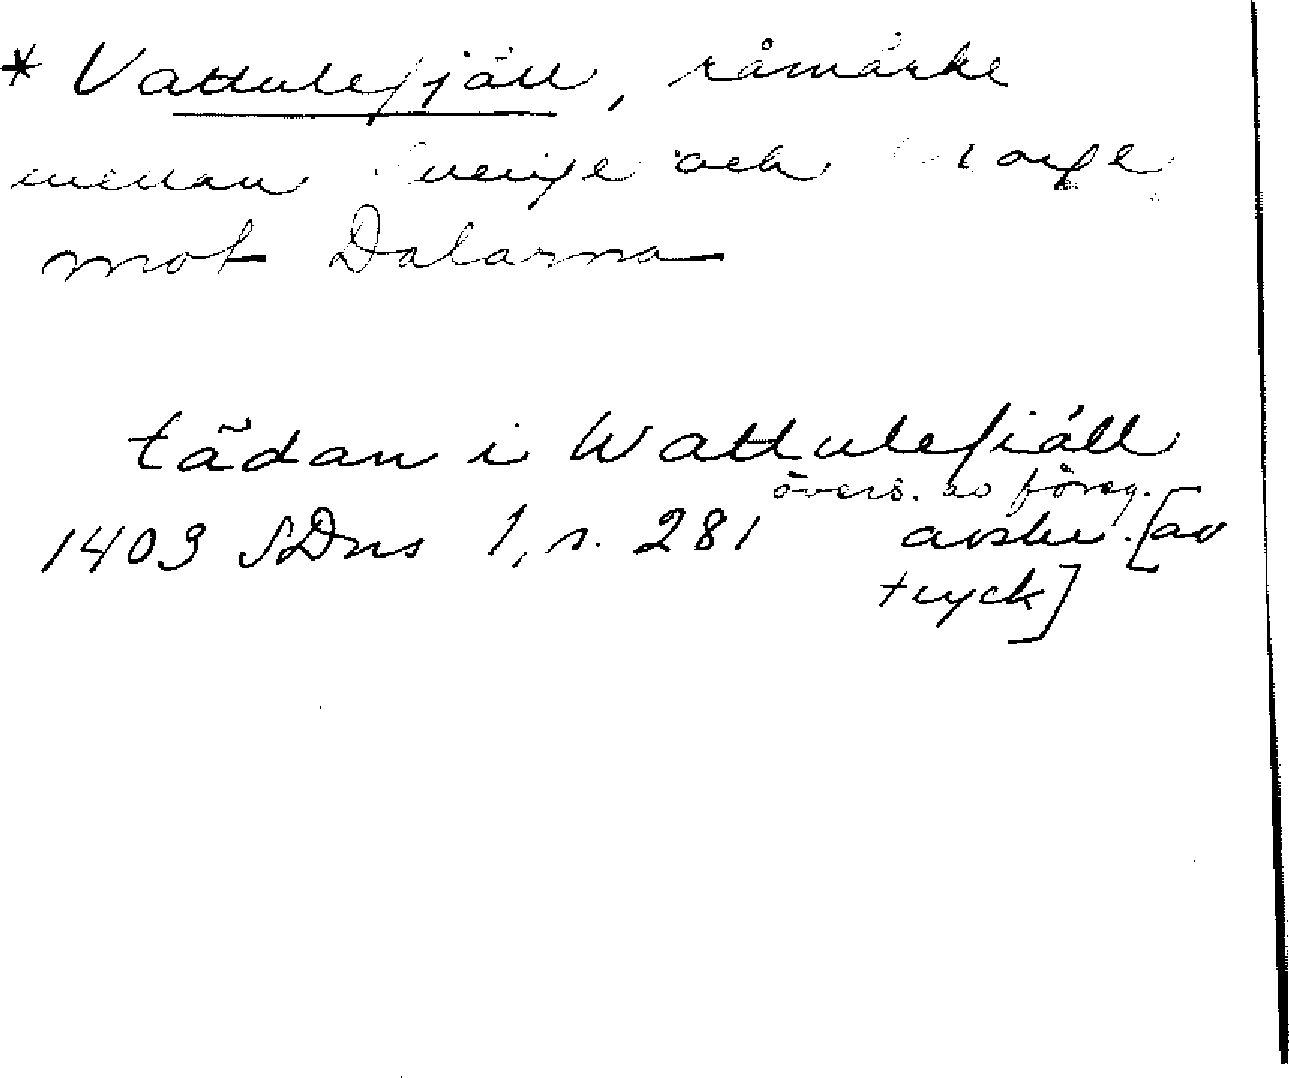 * Vattulefjäll, råmärke
mellan Sverige och Norge
mot Dalarna
tädan i Wattulefiäll
övers. av föreg.
1403 SDns 1, s. 281 avskr. [av
tryck]